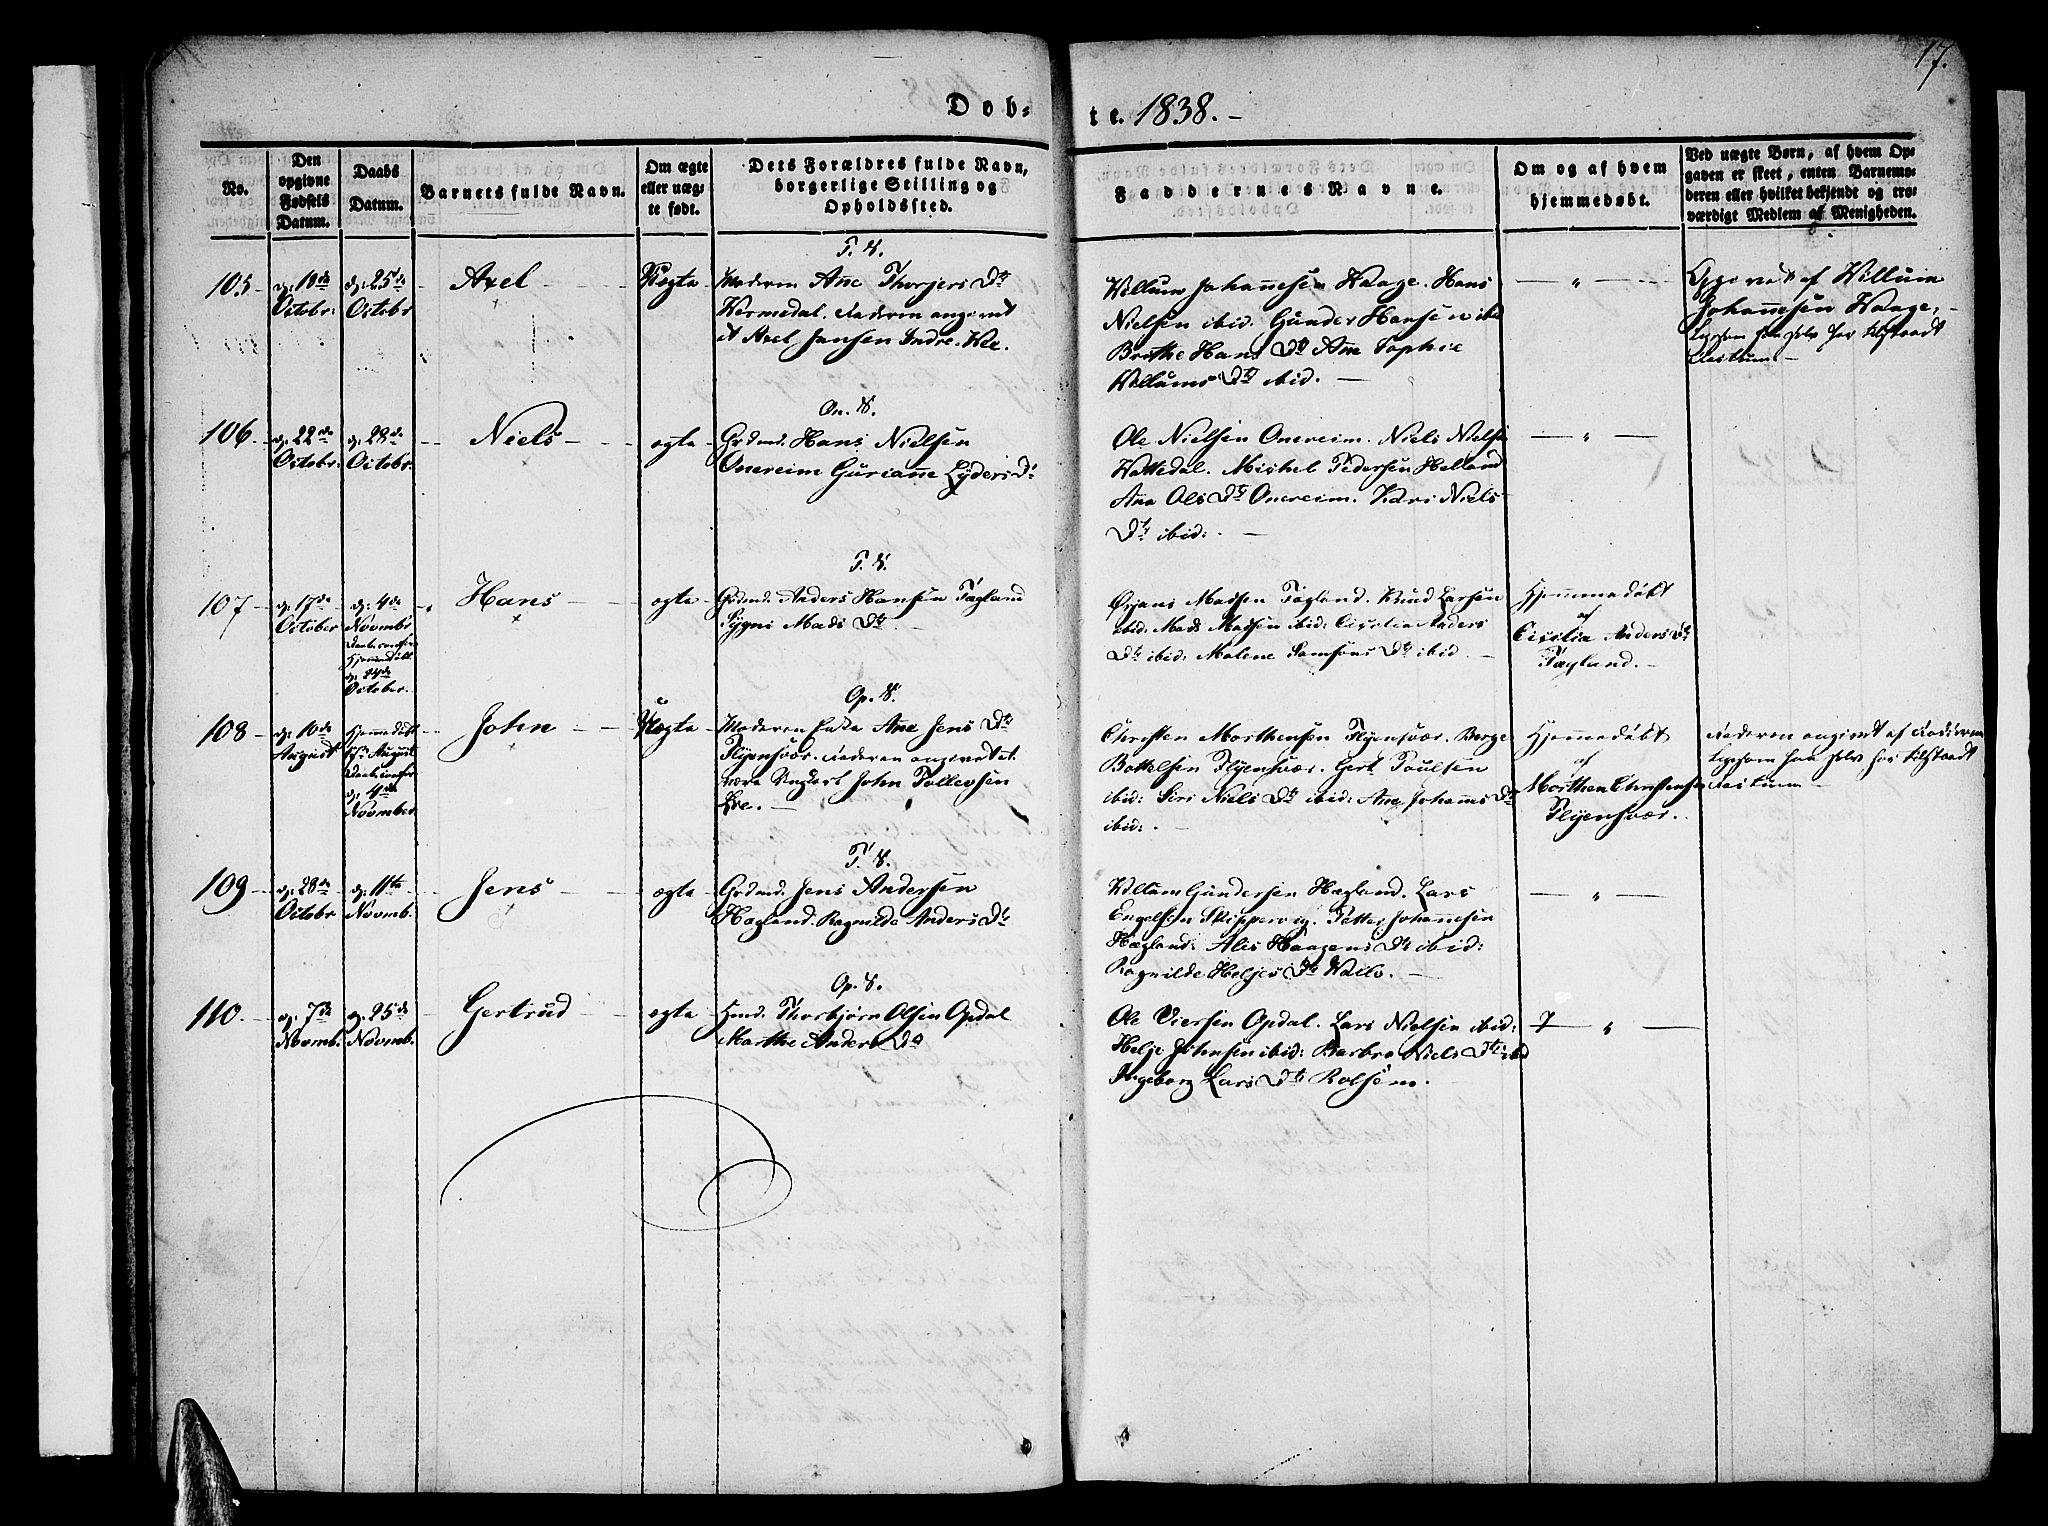 17.
Dob=
te. 1838.-
No.
Den opgivne Fødsels Datum.
Daabs Datum.
Barnets fulde Navn.
Om ægte eller uæg- te født.
Dets Forældres fulde Navn, borgerlige Stilling og Opholdssted.
Faddernes Navne.
Om og af hvem hjemmedøbt.
Ved uægte Børn, af hvem Op- gaven er skeet, enten Barnemo- deren eller hvilket bekjendt og tro- værdigt Medlem af Menigheden.
T. K.
105
d: 18de
Octobr:
d: 25de
Octobr
Axel
Uægta
Moderen Ane Thorjers Dtr
Faderen angivet
Axel Jansen Indre-
Willum Johannesen Waage. Hans
Nielsen ibid. Gunder Hansen ibid
Brethe Hans Dtr Ane Sophie
Willums Dtr ibid.
Opgivet af Willum
Johannesen Waage,
On. K.
106
d: 22de
Octobr:
d: 28de
Octobr.
Niels
ægta
Grdmd. Hans Nielsen
Onereim Gurianne Lyders D:
Ole Nielsen Onereim. Niels Nielsen
Wattedal. Michel Pedersen Helland
Ana Ols Dtr Onereim. Kari Niels
Dtr ibid:
T. K.
107
d: 17de
October
d: 4de
Novmbr
Hjemmedøbt
d: 24de
October.
Hans
ægta
Grdmd. Anders Hansen Tøgland
Sygni Mads Dtr
Ørjans Madsen Tøgland. Knud Larsen
ibid. Mads Madsen ibid: Cicilia Anders
Dtr ibid: Malene Samsons Dtr ibid
Hjemmedøbt
af
Cicilia Anders Dtr
Tøgland.
Op. K.
108
d: 10de
August
Hjemmedøbt
August
d: 4de
Novmber
John
Uægta
Moderen Ane Jens Dtr
Flyensvær. Faderen angivet at
være Ungkarl John Tollevsen
Lie.
Christen Morthensen Flyensvær. Børge
Bottelsen Flyensvær. Gert Poulsen
ibid: Siri Niels Dtr ibid: Ana Johannes Dtr
ibid:
Hjemmedøbt
af
Morthen Christensen
Flyensvær.
Faderen angivet af Moderen
T. K.
109
d: 28de
Octobr
d: 11te
Novmb.
Jens
ægta
Grdmd. Jens Andersen
Hagland. Ragnilde Anders Dtr
Willum Gundersen Hagland. Lars
Engelsen Skippervig. Petter Johannesen
Hagland: Alis Haagens Dtr ibid:
Ragnilde Heljes Dtr
Op. K.
110.
d: 7de
Novmb.
d: 25de
Novmb.
Gertrud
ægta
Hmd. Thorbjørn Olsen Opdal
Marthe Anders Dtr
Ole Opdal. Lars Nielsen ibid:
Helje Johnsen ibid: Barbro Niels Dtr ibid
Ingeborg Lars Dtr Rolsem.